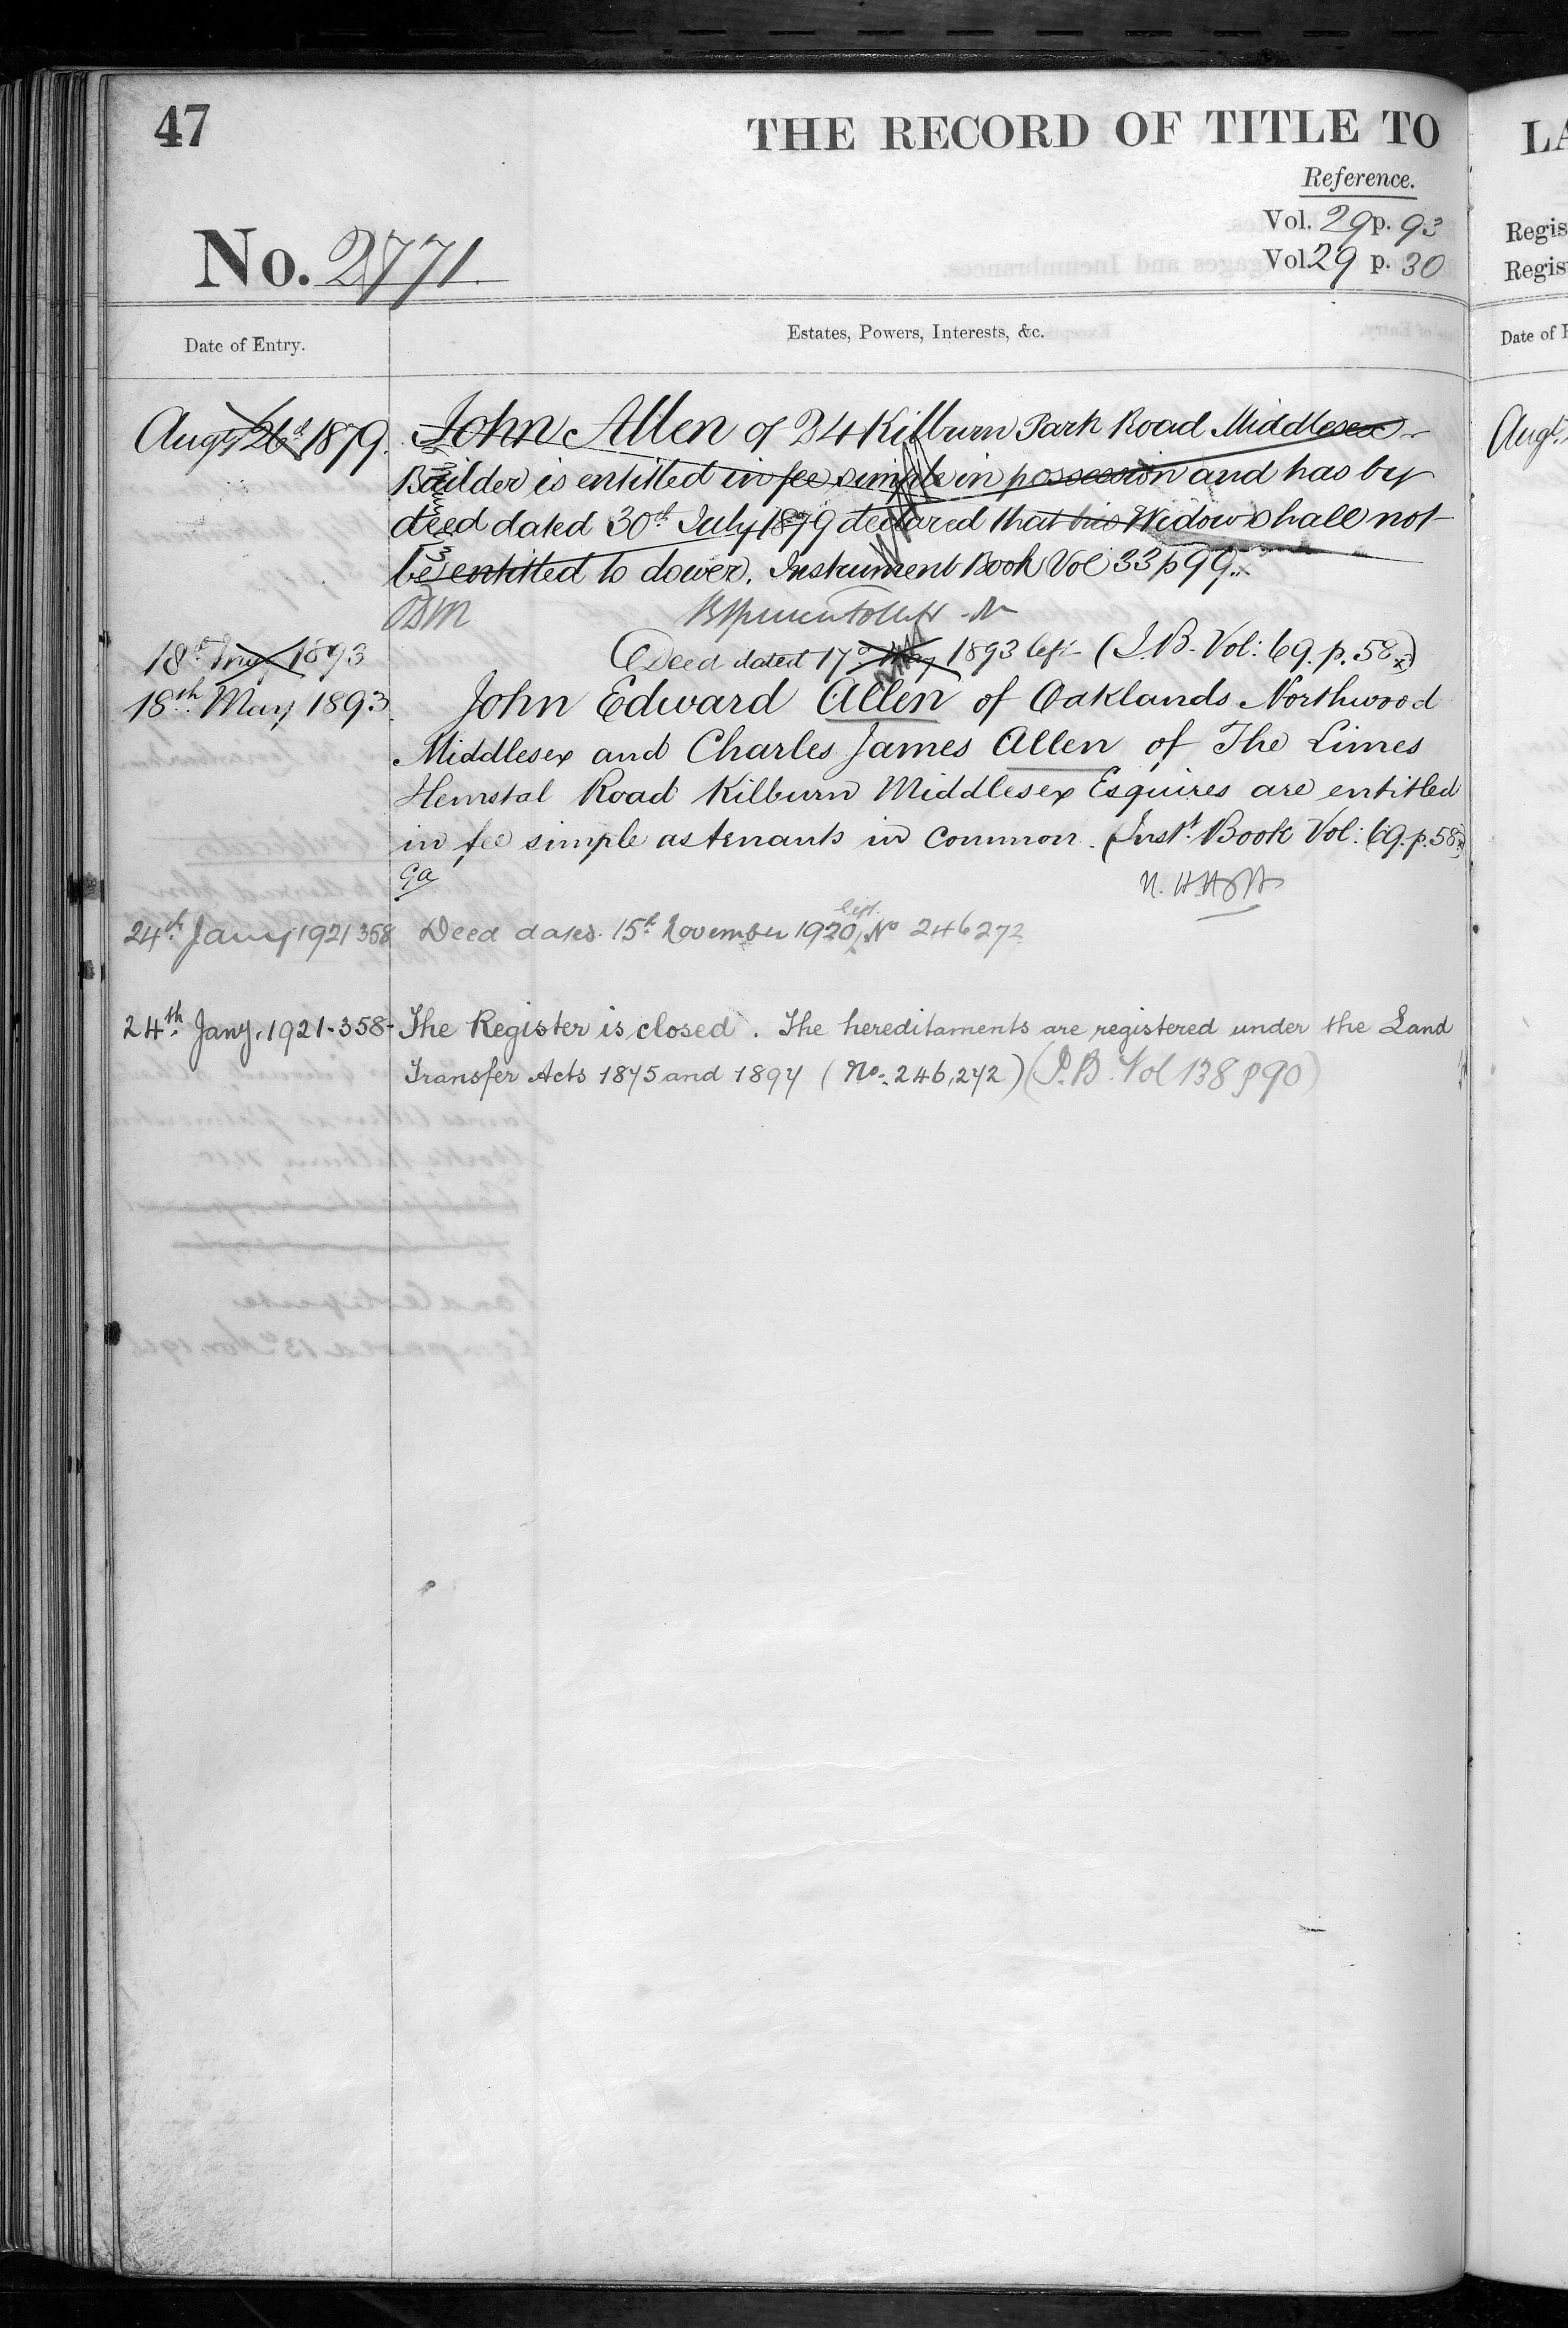 47
THE RECORD OF TITLE TO
Reference.
Vol. 29 p. 93
No. 2771.
Vol. 29 p. 30
Date of Entry.
Estates, Powers, Interests, &c.
Augt 26th 1879. John Allen of 24 Kilburn Park Road Middlesex
Builder is entitled in fee simple in possession and has by
deed dated 30th July 1879 declared that his Widow shall not
be entitled to dower. Instrument Book Vol 33 p 99.
18th May 1893 Deed dated 17th May 1893 left (I.B. Vol: 69. p. 58)
18th May 1893. John Edward Allen of Oaklands Northwood
Middlesex and Charles James Allen of The Limes
Hemstal Road Kilburn Middlesex Esquires are entitled
in fee simple as tenants in common. (Inst. Book Vol: 69. p. 58)
left.
24th Jany 1921 358 Deed dated 15th November 1920, No 246272
24th Jany. 1921-358- The Register is closed. The hereditaments are registered under the Land
Transfer Acts 1875 and 1897 (No. 246,272) (I.B. Vol 138 p 90)
LA
Regis
Regis
Date of
Augt.